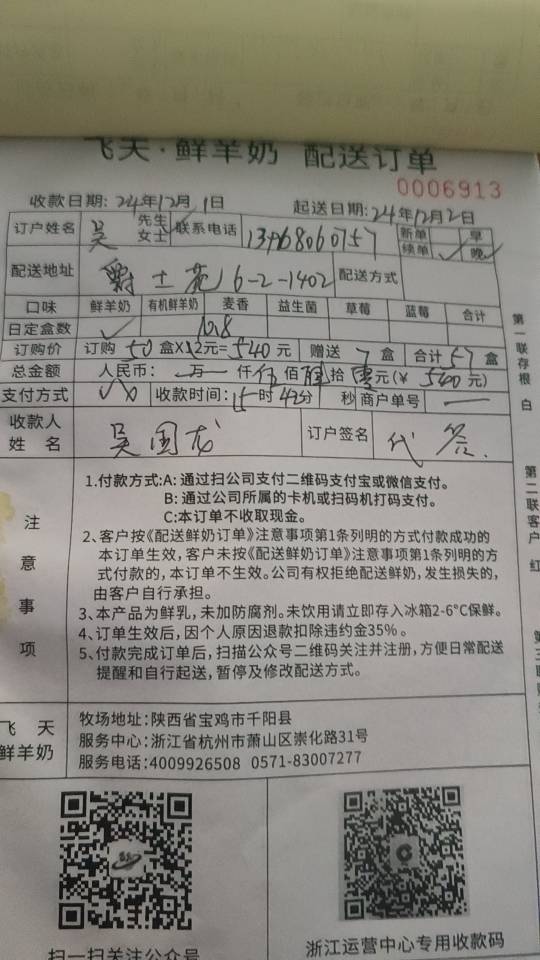 飞天·鲜羊奶 配送订单
0006913
收款日期: 24年12月1日 起送日期: 24年12月2日
订户姓名 吴 先生 女士 联系电话 新单 续单 早 晚
配送地址 爵士花 6-2-1402 配送方式
口味 鲜羊奶 有机鲜羊奶 麦香 益生菌 草莓 蓝莓 合计
日定盒数 ✓ 10.8
订购价 订购 50 盒X12元=540元 赠送 7 盒 合计 57 盒
总金额 人民币: 万 仟 伍 佰 肆 拾 零 元(¥ 540 元)
支付方式 收款时间: 15时42分 秒 商户单号 —
收款人姓名 吴国龙 订户签名 代签.
注意事项
1.付款方式:A: 通过扫公司支付二维码支付宝或微信支付。
B: 通过公司所属的卡机或扫码机打码支付。
C:本订单不收取现金。
2、客户按《配送鲜奶订单》注意事项第1条列明的方式付款成功的
本订单生效，客户未按《配送鲜奶订单》注意事项第1条列明的方
式付款的，本订单不生效。公司有权拒绝配送鲜奶，发生损失的，
由客户自行承担。
3、本产品为鲜乳，未加防腐剂。未饮用请立即存入冰箱2-6°C保鲜。
4、订单生效后，因个人原因退款扣除违约金35%。
5、付款完成订单后，扫描公众号二维码关注并注册，方便日常配送
提醒和自行起送，暂停及修改配送方式。
飞天
鲜羊奶
牧场地址:陕西省宝鸡市千阳县
服务中心:浙江省杭州市萧山区崇化路31号
服务电话:4009926508 0571-83007277
扫一扫关注公众号
浙江运营中心专用收款码
第一联存根 白
第二联客户 红
第三联